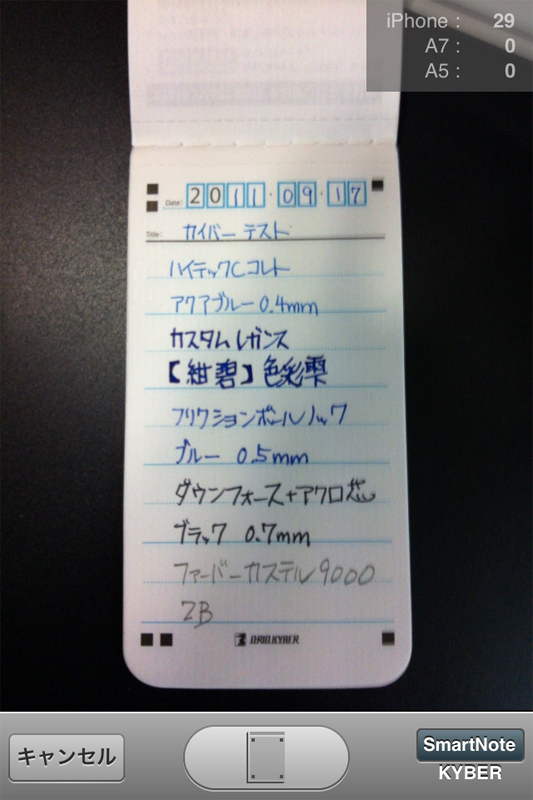 iPhone : 29
A7 : 0
A5 : 0
Date: 2011・09・17
Title: カイバー テスト
ハイテックCコレト
アクアブルー 0.4mm
カスタムレガンス
【紺碧】色彩雫
フリクションボールノック
ブルー 0.5mm
ダウンフォース+アクロ芯
ブラック 0.7mm
ファーバーカステル9000
2B
KYBER
キャンセル
SmartNote
KYBER